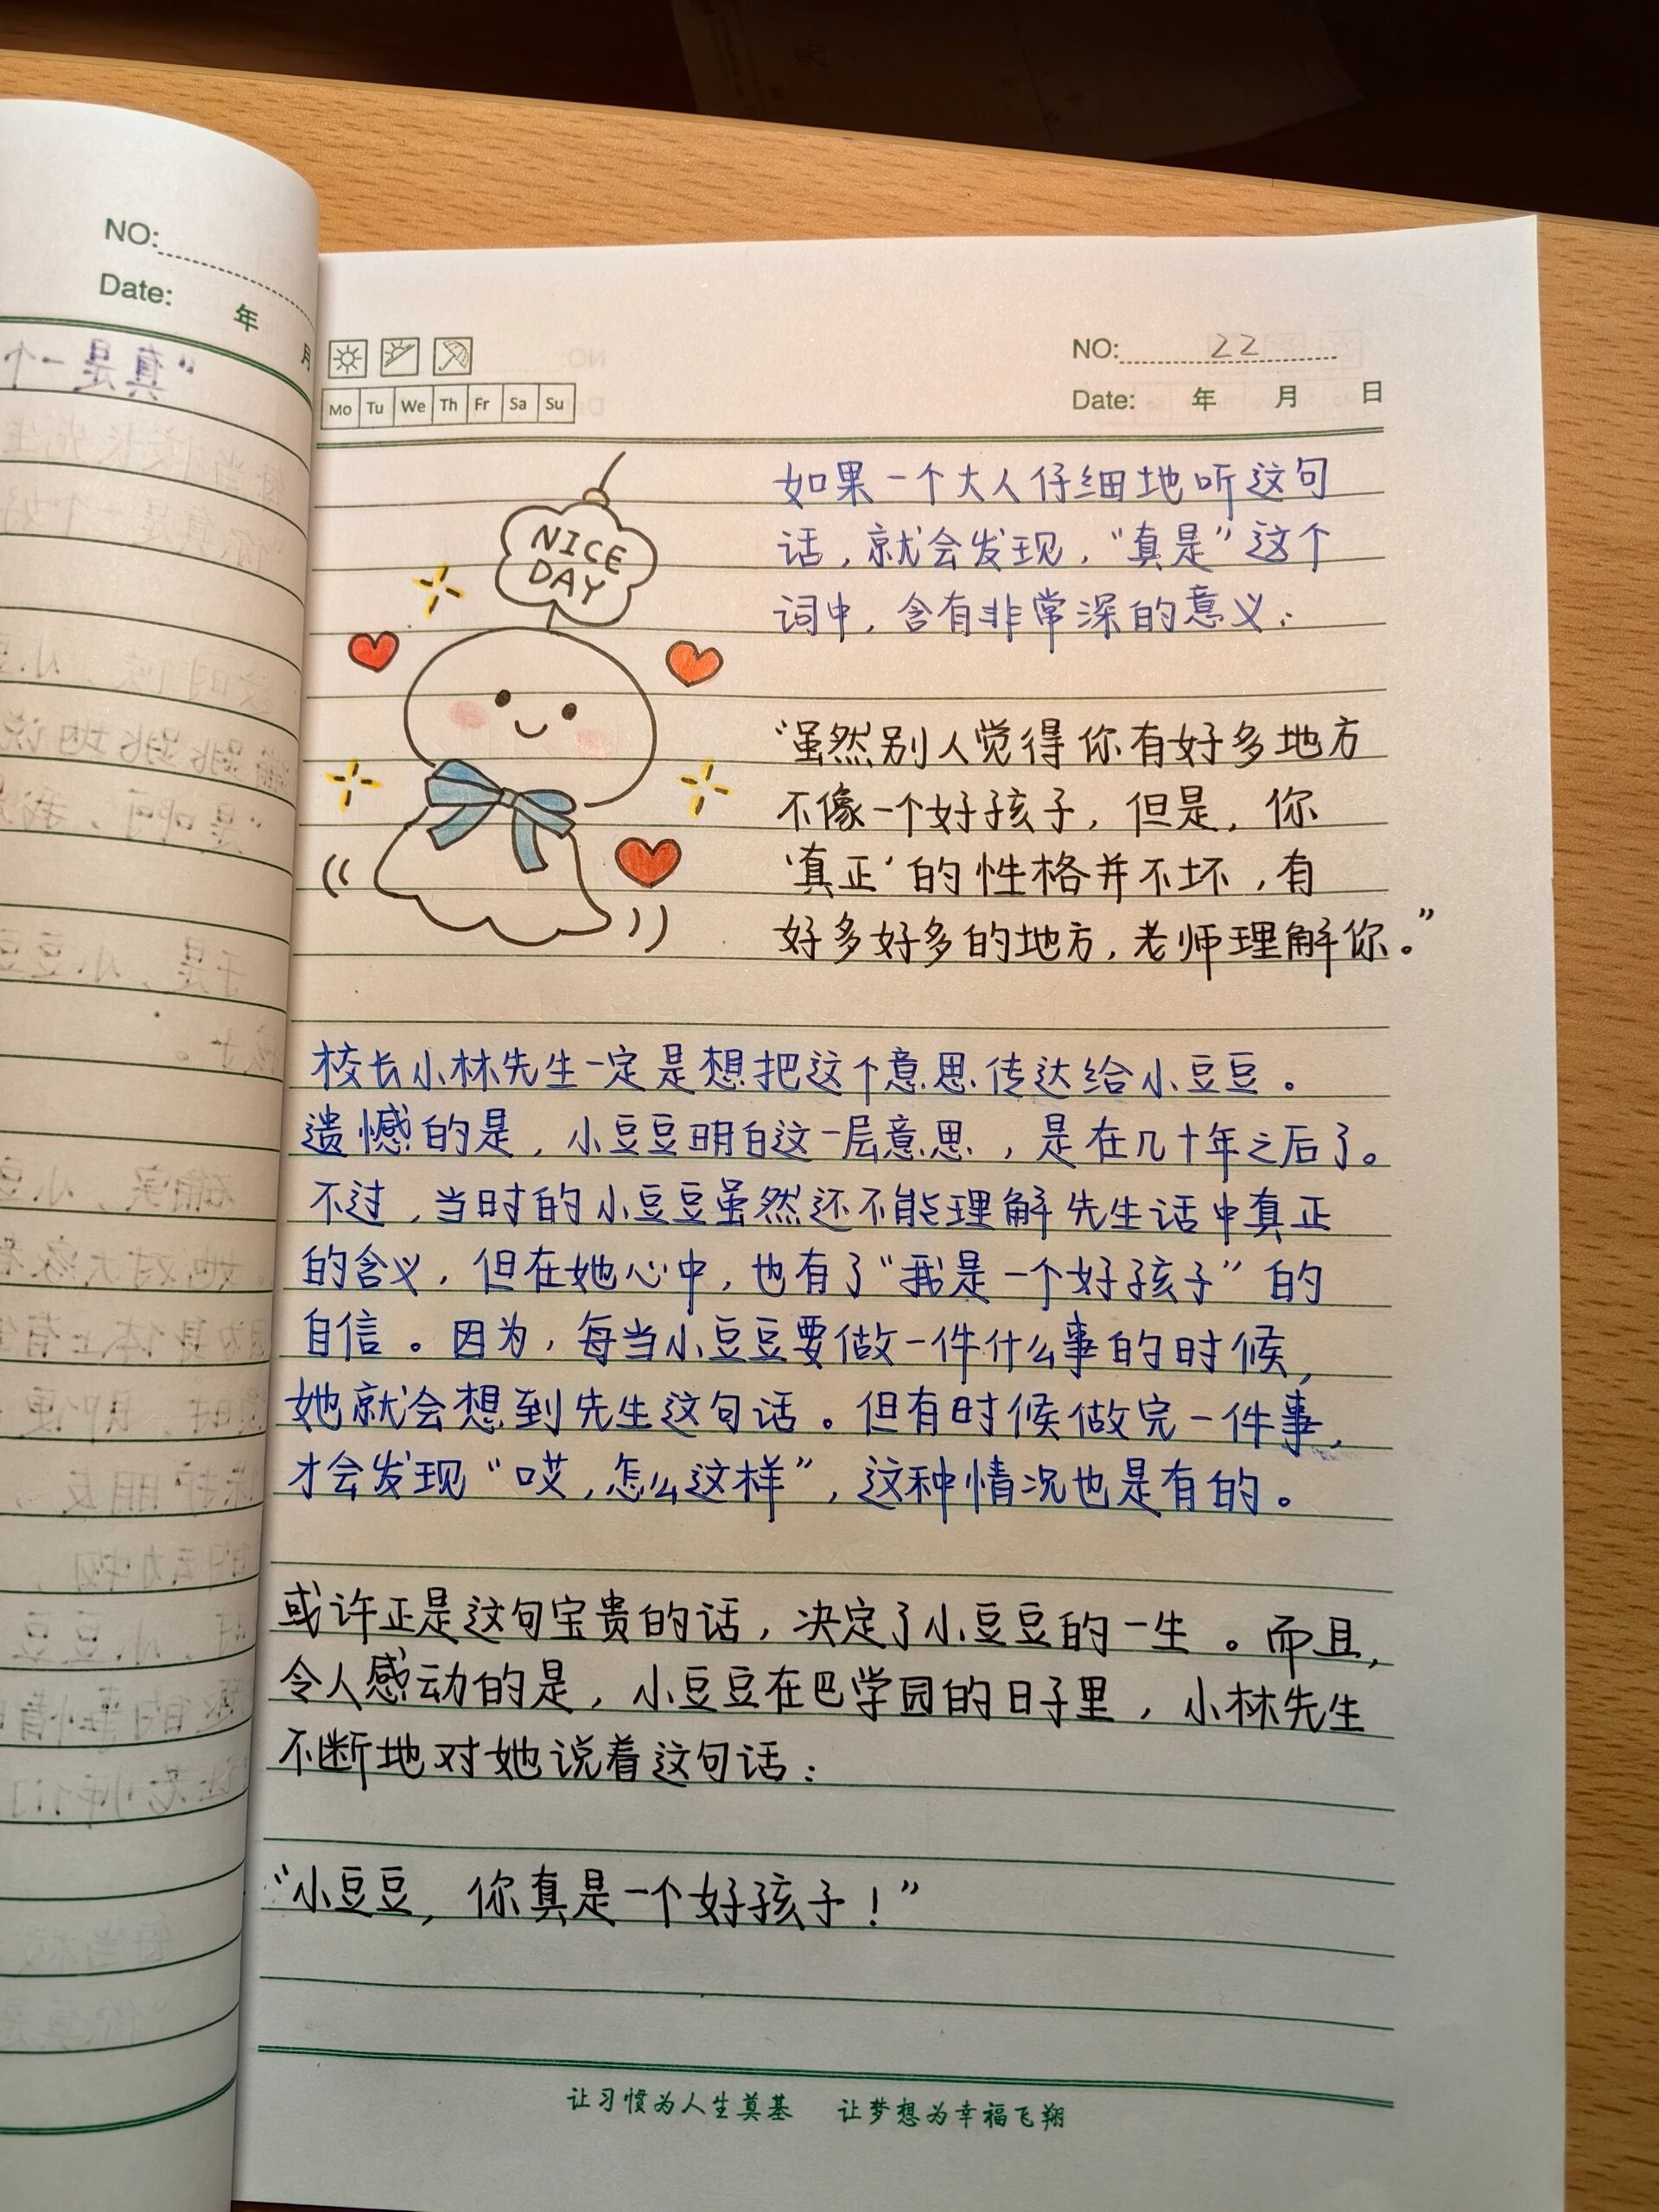 NO:
Date: 年 月
"真是一个
NO: 22
Mo Tu We Th Fr Sa Su
Date: 年 月 日
NICE
DAY
如果一个大人仔细地听这句
话，就会发现，“真是”这个
词中，含有非常深的意义：
“虽然别人觉得你有好多地方
不像一个好孩子，但是，你
‘真正’的性格并不坏，有
好多好多的地方，老师理解你。”
校长小林先生一定是想把这个意思传达给小豆豆。
遗憾的是，小豆豆明白这一层意思，是在几十年之后了。
不过，当时的小豆豆虽然还不能理解先生话中真正
的含义，但在她心中，也有了“我是一个好孩子”的
自信。因为，每当小豆豆要做一件什么事的时候，
她就会想到先生这句话。但有时候做完一件事，
才会发现“哎，怎么这样”，这种情况也是有的。
或许正是这句宝贵的话，决定了小豆豆的一生。而且，
令人感动的是，小豆豆在巴学园的日子里，小林先生
不断地对她说着这句话：
“小豆豆，你真是一个好孩子！”
让习惯为人生奠基 让梦想为幸福飞翔